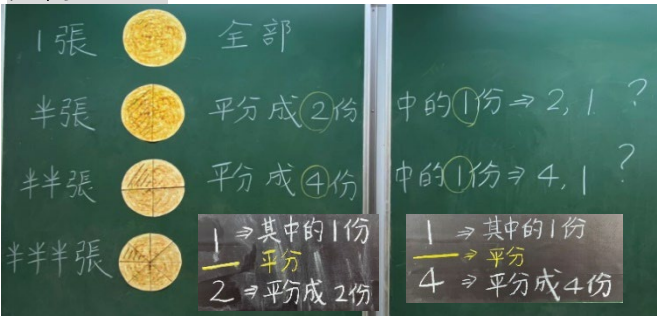 1張 全部
半張 平分成2份 中的1份⇒2,1 ?
半半張 平分成4份 中的1份⇒4,1 ?
半半半張
1⇒其中的1份
⇒平分
2⇒平分成2份
1⇒其中的1份
⇒平分
4⇒平分成4份